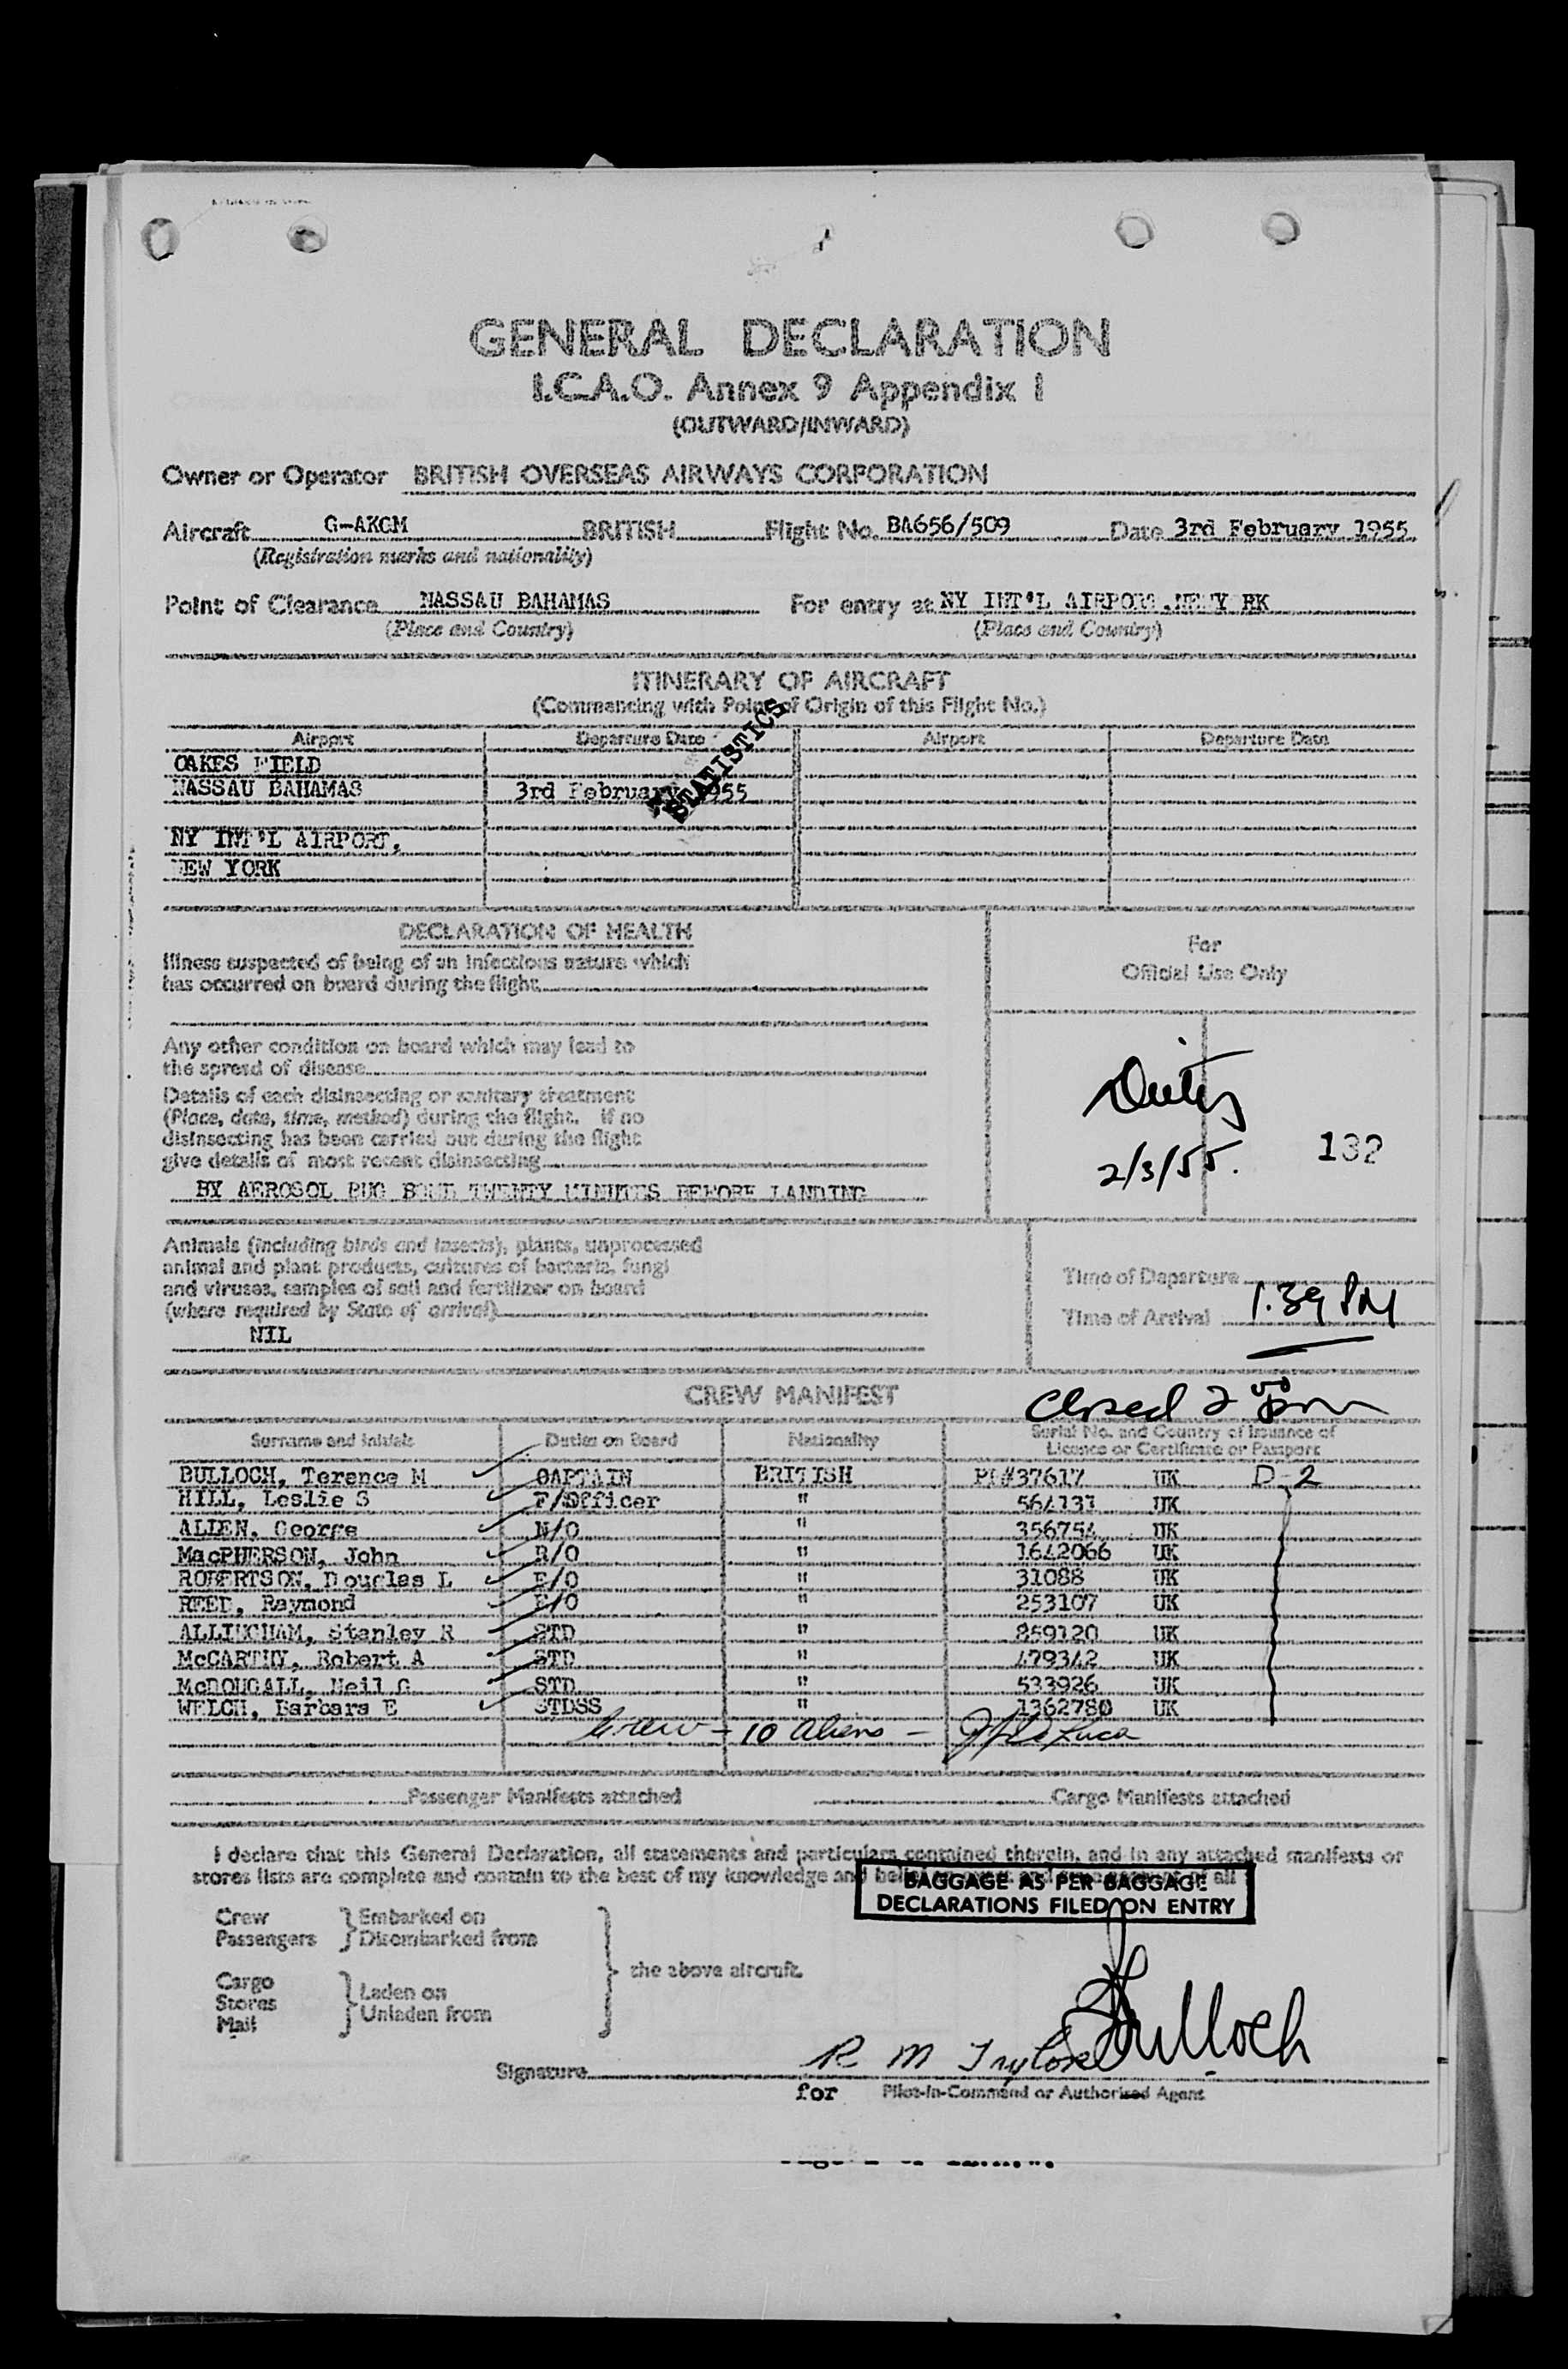 GENERAL DECLARATION
I.C.A.O. Annex 9 Appendix I
(OUTWARD/INWARD)
Owner or Operator BRITISH OVERSEAS AIRWAYS CORPORATION
Aircraft G-AKGM BRITISH Flight No. BA656/509 Date 3rd February 1955
(Registration marks and nationality)
Point of Clearance NASSAU BAHAMAS For entry at NY INT'L AIRPORT,
(Place and Country) (Place and Country)
ITINERARY OF AIRCRAFT
(Commencing with Point of Origin of this Flight No.)
STATISTICS
Airport Departure Date Airport Departure Date
OAKES FIELD
NASSAU BAHAMAS 3rd February 1955
NY INT'L AIRPORT,
NEW YORK
DECLARATION OF HEALTH
Illness suspected of being of an infectious nature which
has occurred on board during the flight
Any other condition on board which may lead to
the spread of disease
Details of each disinsecting or sanitary treatment
(Place, date, time, method) during the flight. If no
disinsecting has been carried out during the flight
give details of most recent disinsecting
BY AEROSOL BUG BOMB TWENTY MINUTES BEFORE LANDING
For
Official Use Only
2/3/55.
132
Animals (including birds and insects), plants, unprocessed
animal and plant products, cultures of bacteria, fungi
and viruses, samples of soil and fertilizer on board
(where required by State of arrival)
NIL
Time of Departure
Time of Arrival 1.39 PM
CREW MANIFEST
Closed 2 50 pm
Surname and Initials Duties on Board Nationality Serial No. and Country of Issuance of
Licence or Certificate or Passport
BULLOCH, Terence M CAPTAIN BRITISH PP#37617 UK D-2
HILL, Leslie S F/Officer " 564131 UK
ALLEN, George N/O " 356754 UK
MacPHERSON, John R/O " 1642066 UK
ROBERTSON, Douglas L E/O " 31088 UK
REED, Raymond E/O " 253107 UK
ALLINGHAM, Stanley R STD " 859120 UK
McCARTHY, Robert A STD " 479342 UK
McDOUGALL, Neil G STD " 533926 UK
WELCH, Barbara E STDSS " 1362780 UK
Crew - 10 aliens - J De Luca
Passenger Manifests attached Cargo Manifests attached
I declare that this General Declaration, all statements and particulars contained therein, and in any attached manifests or
stores lists are complete and contain to the best of my knowledge and of all
BAGGAGE AS PER BAGGAGE
DECLARATIONS FILED ON ENTRY
Crew Embarked on
Passengers Disembarked from
the above aircraft.
Cargo
Stores Laden on
Mail Unladen from
Bulloch
Signature R M Taylor
for Pilot-in-Command or Authorised Agent